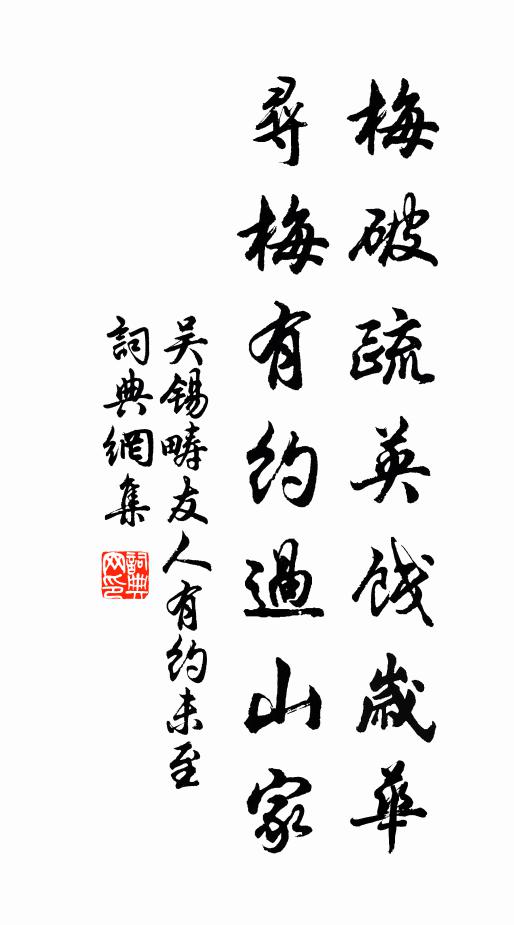 梅破疏英餞歲華
尋梅有約過山家
吳錫疇友人有約未至
詞典網集
詞典网印